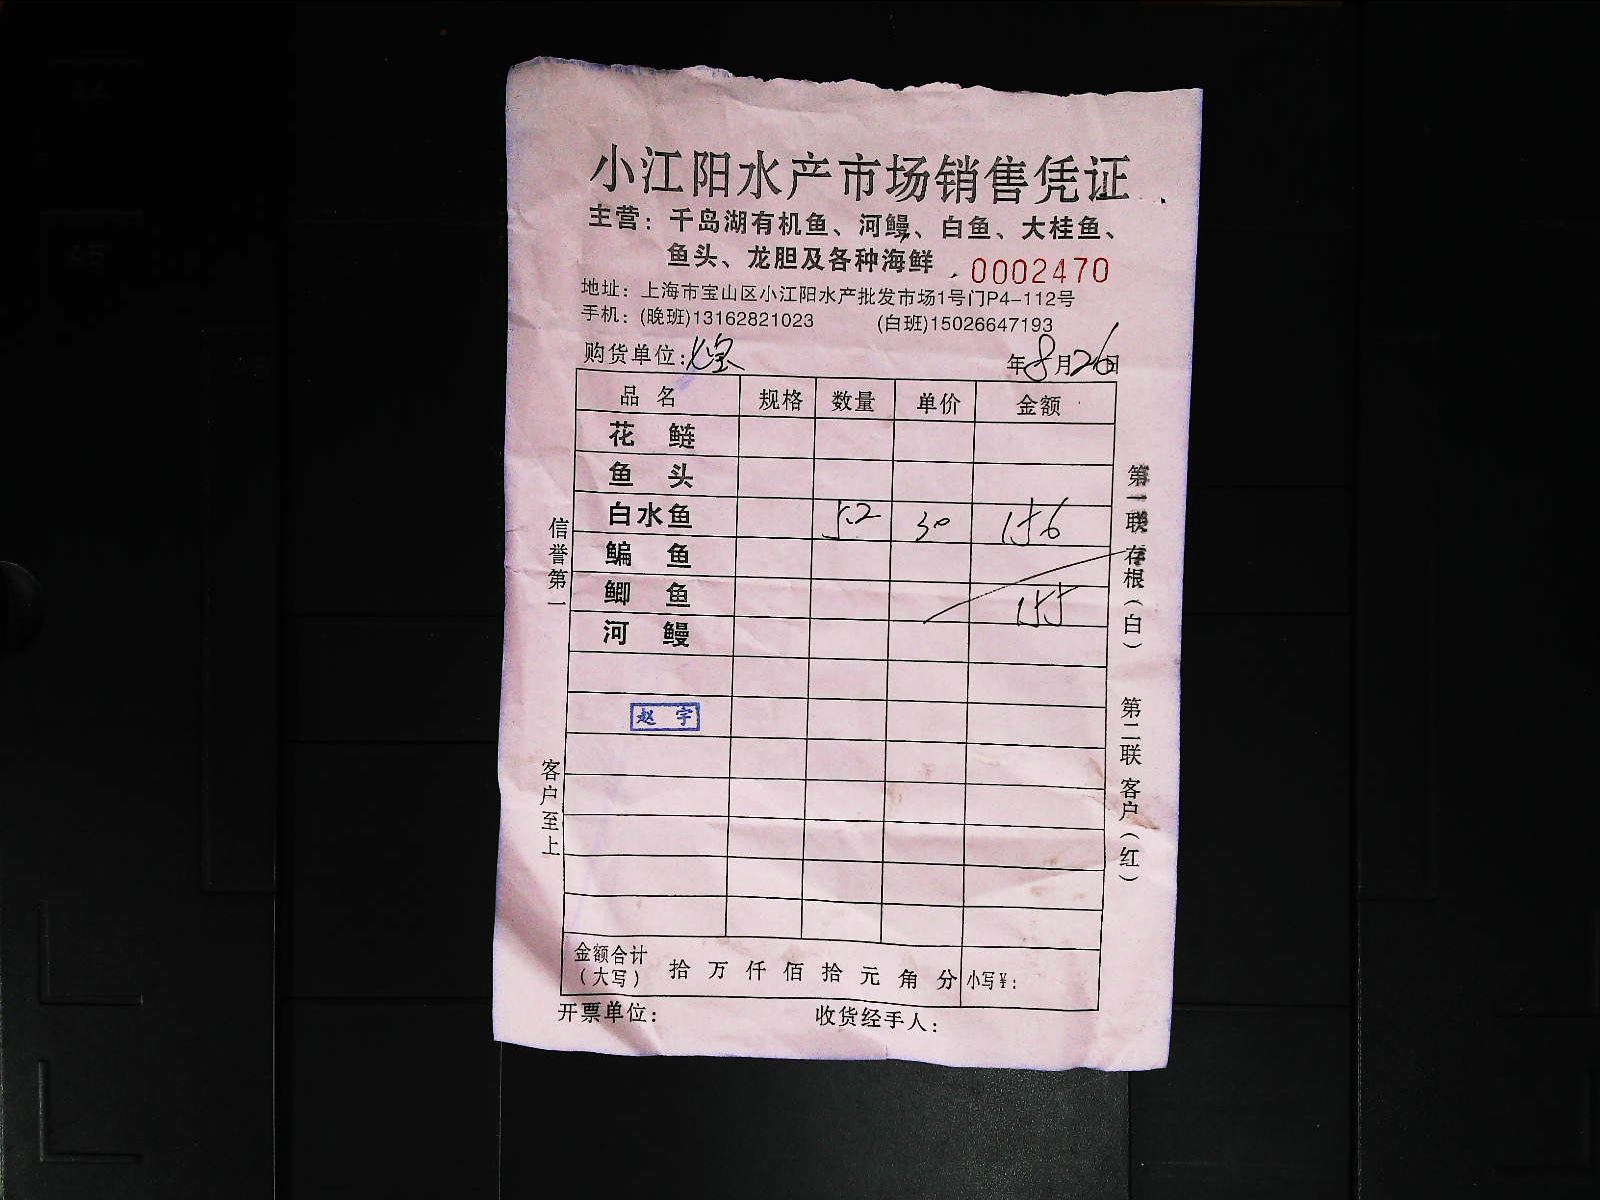 小江阳水产市场销售凭证
主营：千岛湖有机鱼、河鳗、白鱼、大桂鱼、
鱼头、龙胆及各种海鲜
0002470
地址：上海市宝山区小江阳水产批发市场1号门P4-112号
手机：(晚班)13162821023 (白班)15026647193
购货单位： 年8月26日
品名 规格 数量 单价 金额
花鲢
鱼头
白水鱼 5.2 30 156
鳊鱼
鲫鱼 155
河鳗
赵宇
信誉第一
客户至上
第一联 存根（白）
第二联 客户（红）
金额合计（大写） 拾 万 仟 佰 拾 元 角 分 小写¥：
开票单位： 收货经手人：